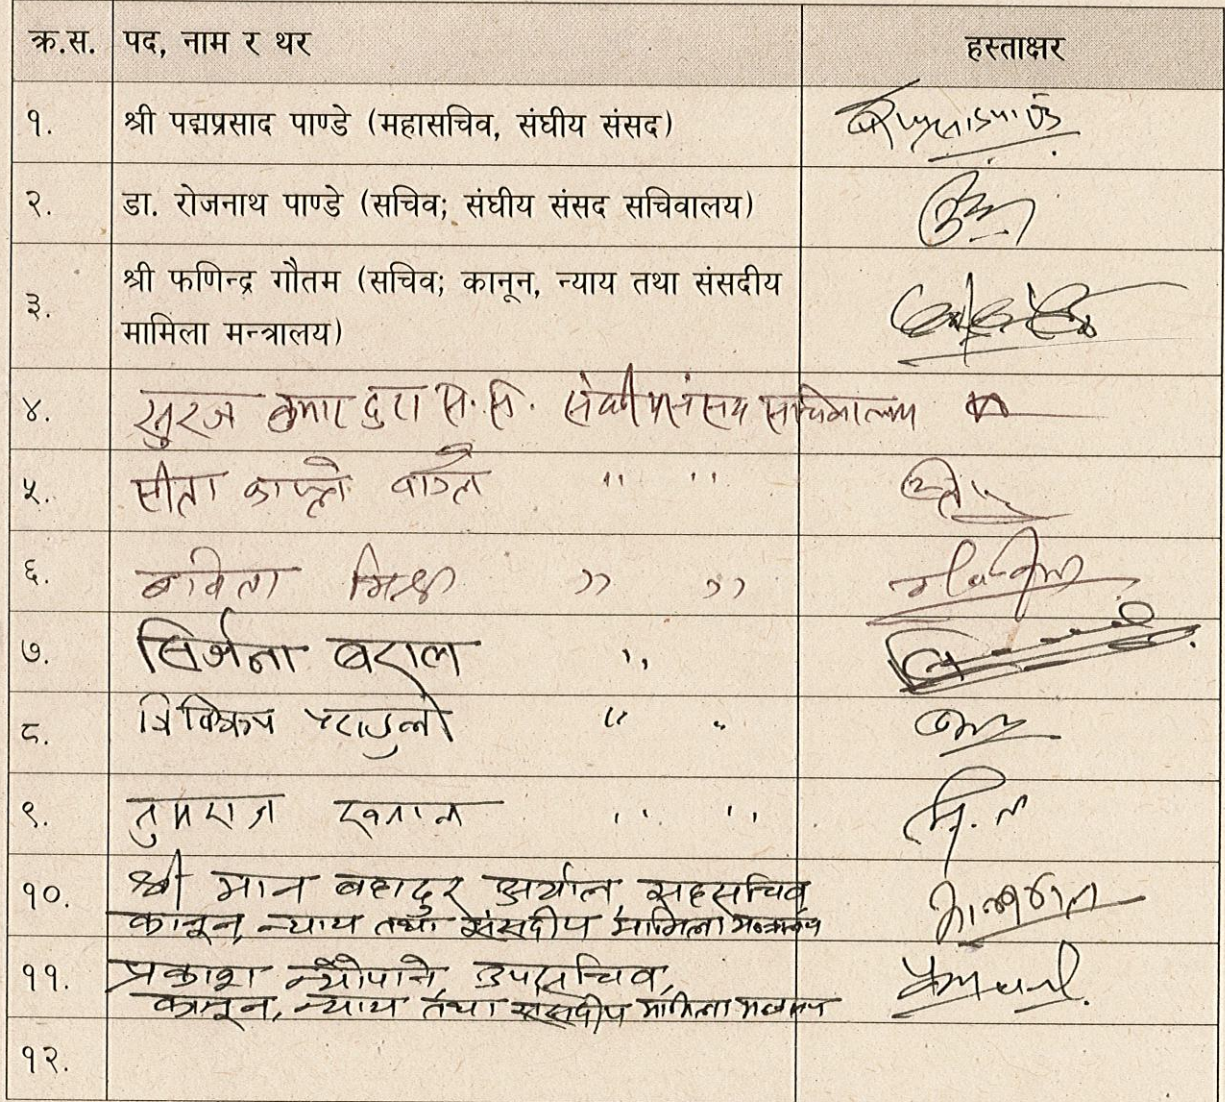 क्र.स. पद, नाम र थर हस्ताक्षर
१. श्री पद्मप्रसाद पाण्डे (महासचिव, संघीय संसद)
२. डा. रोजनाथ पाण्डे (सचिव; संघीय संसद सचिवालय)
३. श्री फणिन्द्र गौतम (सचिव; कानून, न्याय तथा संसदीय
मामिला मन्त्रालय)
४. सुरज कुमार दुरा स.स. संघीय संसद सचिवालय
५. सीता काफ्ले वाग्ले " "
६. बबिता मिश्र " "
७. सिर्जना बराल "
८. त्रिविक्रम " "
९. तुमराज खनाल " "
१०. श्री मान बहादुर अर्याल, सहसचिव
कानून, न्याय तथा संसदीय मामिला मन्त्रालय
११. प्रकाश न्यौपाने, उपसचिव,
कानून, न्याय तथा संसदीय मामिला मन्त्रालय
१२.